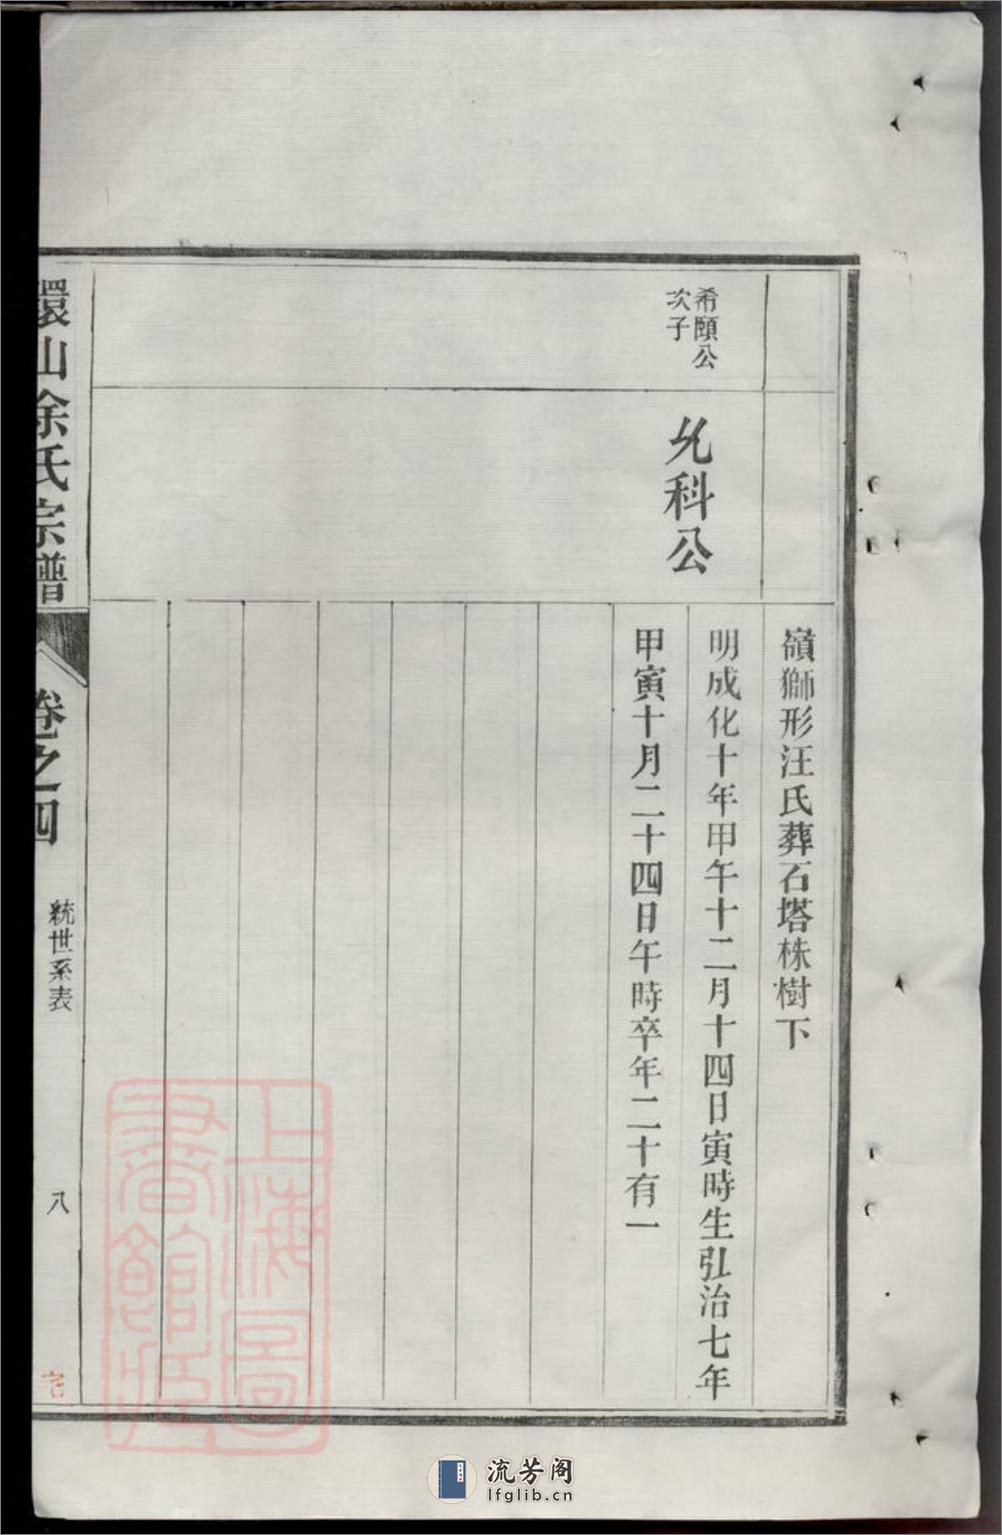 嶺獅形汪氏葬石塔株樹下
希頤公
次子
允科公
明成化十年甲午十二月十四日寅時生弘治七年
甲寅十月二十四日午時卒年二十有一
環山余氏宗譜
卷之四
統世系表
八
上海圖
書館藏
流芳阁
lfglib.cn